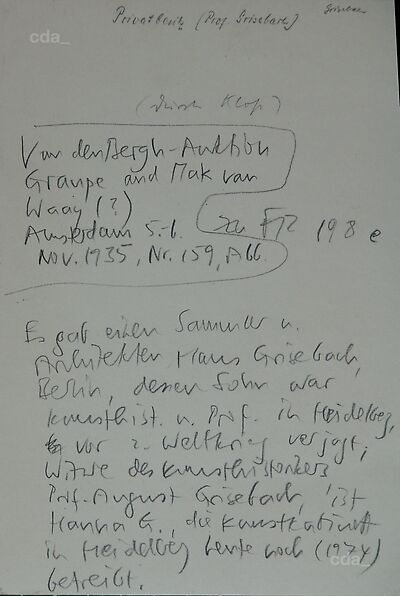 cda_
Privatbesitz (Prof. Grisebach)
Grisebach
(durch Klop?)
Van den Bergh-Auktion
Graupe and Mak van
Waay (?)
Amsterdam 5.-6.
zu FR 198 e
Nov. 1935, Nr. 159, Abb.
Es gab einen Sammler u.
Architekten Hans Grisebach,
Berlin, dessen Sohn war
Kunsthist. u. Prof. in Heidelbeg,
vor 2. Weltkrieg verjagt;
Witwe des Kunsthistorikers
Prof. August Grisebach, ist
Hanna G., die Kunstkabinett
in Heidelbeg heute noch (1974)
cda_
betreibt.